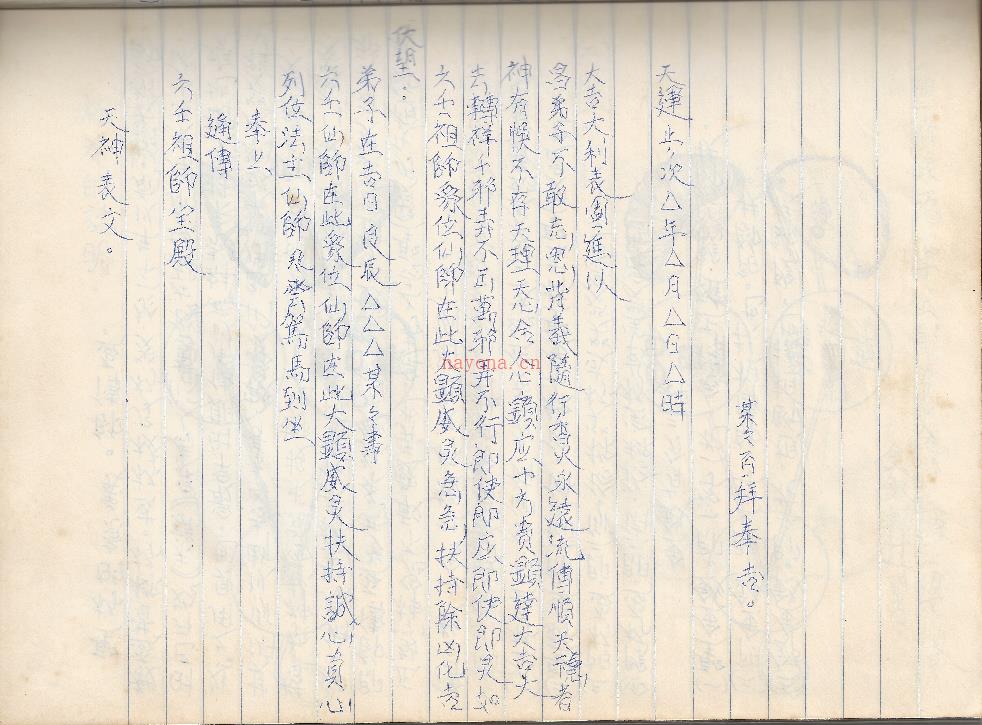 天神表文。
六壬祖師宝殿
通傳
奉上
列位法主仙師飛雲駕馬到坐
六壬仙師在此衆位仙師在此大顕威灵扶持誠心真心
弟子在吉日良辰△△△某々壽
伏望：
六壬祖師衆位仙師在此大顕威灵急急扶持除凶化吉
去轉祥千邪弄不正萬邪弄不行即使即应即使即灵如
神有悞不存天理天心合人心顕应十方貴顕達大吉大
為弟子不敢忘恩背義隨行香火永遠流傳順天德者
大吉大利表圍進以
天運上次△年△月△日△時
某々百拜奉吉。
nayona.cn